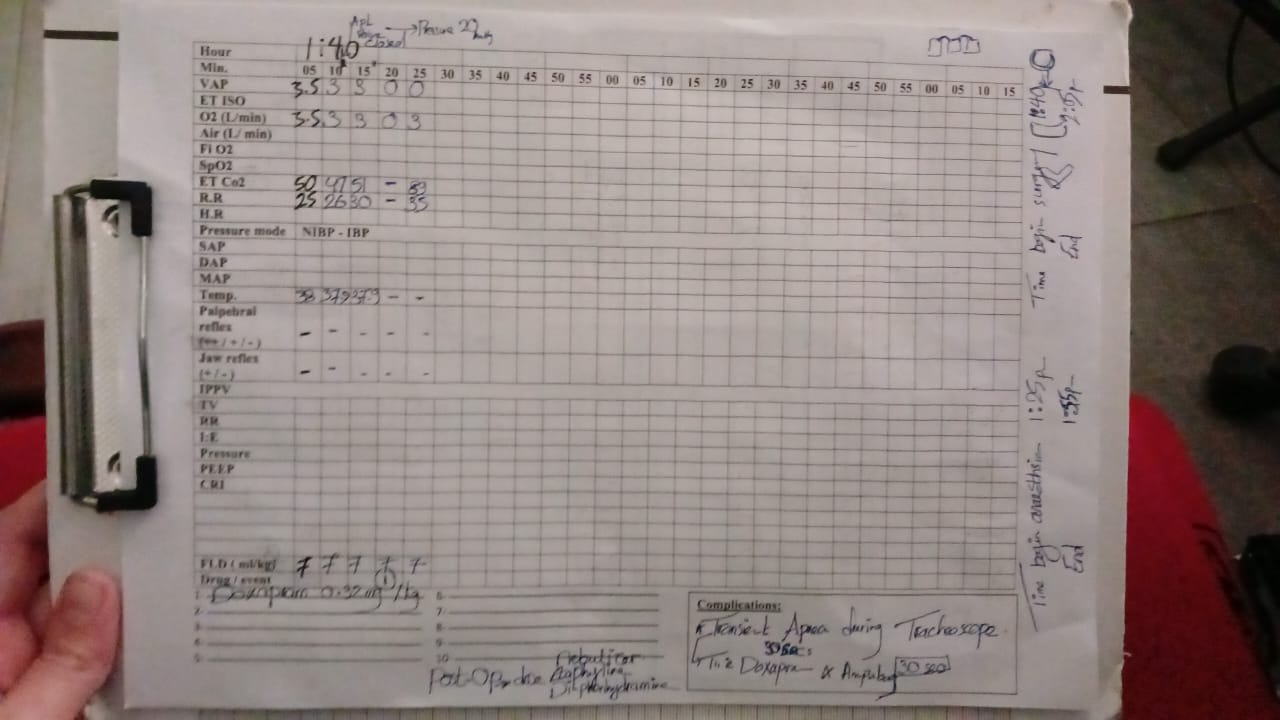 Apl
closed → Pressure 22
Hour 1:40
Min. 05 10 15 20 25 30 35 40 45 50 55 00 05 10 15 20 25 30 35 40 45 50 55 00 05 10 15
VAP 3.5 3 3 0 0
ET ISO
O2 (L/min) 3.5 3 3 0 3
Air (L/ min)
Fi O2
SpO2
ET Co2 50 47 51 -
R.R 25 26 30 - 35
H.R
Pressure mode NIBP - IBP
SAP
DAP
MAP
Temp. 38 37.9 37.9 - -
Palpebral
reflex
(++ / + / - )
- - - - -
Jaw reflex
(+ / - )
- - - - -
IPPV
TV
RR
I:E
Pressure
PEEP
CRI
FLD ( ml/kg) 7 7 7 7 7
Drug / event 1
1 Doxapram 0.32 mg/kg
2
3
4
5
6
7
8
9
10
Post-Op
Diphenhydramine
Complications:
Transient Apnea during Tracheoscope
30 secs
Doxapram & Ambubag 30 sec
Time begin anaesthesia 1:25p
End 1:55p
Time begin surgery 1:40
End